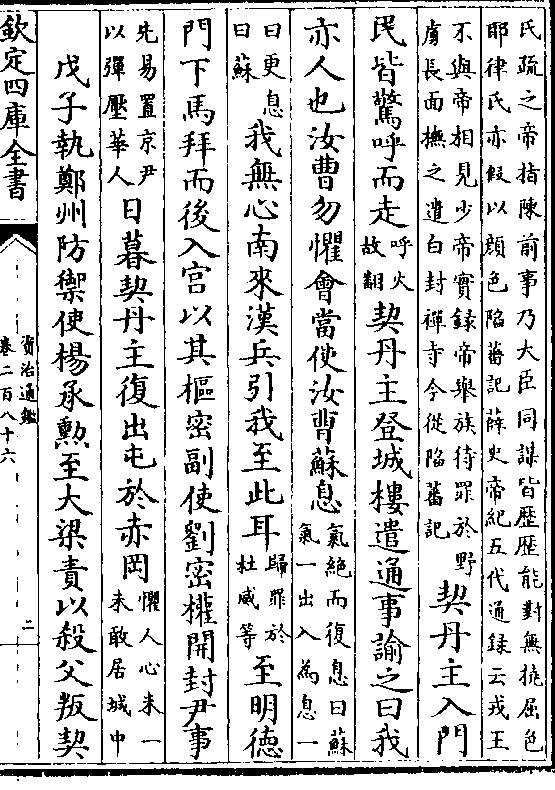 氏疏之帝指陳前事乃大臣同謀皆歷歷能對無撓屈色
耶律氏亦假以顔色陷蕃記薛史帝紀五代通録云戎王
不與帝相見少帝實録帝舉族待罪於野
虜長面撫之遣白封禪寺今從陷蕃記
契丹主入門
民皆驚呼而走
呼火
故翻
契丹主登城樓遣通事諭之曰我
亦人也汝曹勿懼會當使汝曹蘇息
氣絶而復息曰蘇
氣一出入為息一
曰更息
曰蘇
我無心南來漢兵引我至此耳
歸罪於
杜威等
至明德
門下馬拜而後入宮以其樞密副使劉密權開封尹事
先易置京尹
以彈壓華人
日暮契丹主復出屯於赤岡
懼人心未一
未敢居城中
戊子執鄭州防禦使楊承勲至大梁責以殺父叛契
欽定四庫全書
資治通鑑
卷二百八十六
二